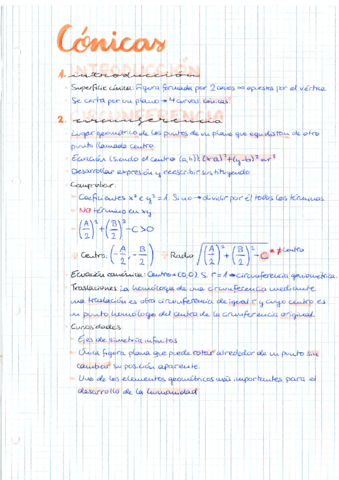 Cónicas
INTRODUCCIÓN
1. introducción
- Superficie cónica: Figura formada por 2 conos ∞ opuestos por el vértice.
Se corta por un plano → 4 curvas cónicas
CIRCUNFERENCIA
2. circunferencia
- Lugar geométrico de los puntos de un plano que equidistan de otro
punto llamado centro.
- Ecuación (siendo el centro (a,b)): (x-a)²+(y-b)²=r²
- Desarrollar expresión y reescribir sustituyendo
- Comprobar:
- Coeficientes x² e y² = 1. Si no → dividir por él todos los términos.
- NO término en xy
- (A/2)² + (B/2)² - C > 0
- Centro: (-A/2, -B/2) - Radio √(A/2)² + (B/2)² - C * ≠ Centro
- Ecuación canónica: Centro = (0,0). Si r=1 → circunferencia goniométrica.
- Traslaciones: La homóloga de una circunferencia mediante
una traslación es otra circunferencia de igual r y cuyo centro es
un punto homólogo del centro de la circunferencia original.
- Curiosidades:
- Ejes de simetría infinitos
- Única figura plana que puede rotar alrededor de un punto sin
cambiar su posición aparente.
- Uno de los elementos geométricos más importantes para el
desarrollo de la humanidad